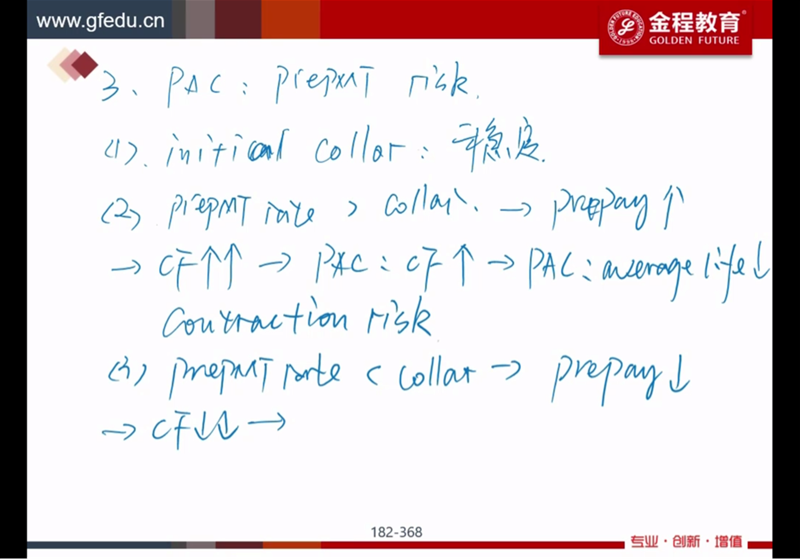 www.gfedu.cn
金程教育®
GOLDEN FUTURE
3、PAC：prepMT risk.
(1). initial collar：平稳度.
(2) prepMT rate > collar. → prepay↑
→ CF↑↑ → PAC：CF↑ → PAC：average life↓
Contraction risk
(3) prepMT rate < collar → prepay↓
→ CF↓↓ →
182-368
专业·创新·增值